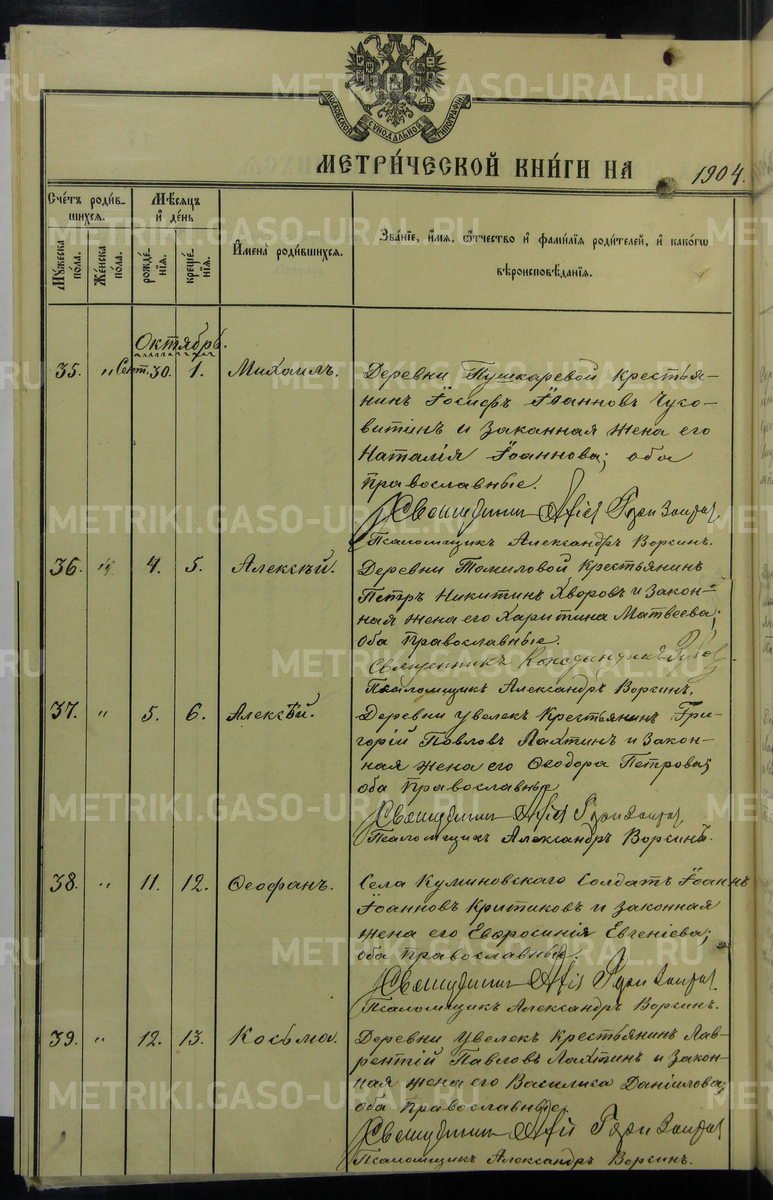 METRIKI.GASO-URAL.RU
МОСКОВСКОЙ СѴНОДАЛЬНОЙ ТИПОГРАФІИ
МЕТРИ́ЧЕСКОЙ КНИ́ГИ НА 1904.
Сче́тъ роди́в-
шихся.
Мѣ́сяцъ
и҆ де́нь
Му́жеска
по́ла.
Же́нска
по́ла.
рожде́-
нія.
креще́-
нія.
И҆мена̀ роди́вшихся.
Зва́ніе, и҆́мя, ѻ҆́тчество и҆ фами́лія роди́телей, и҆ како́гѡ
вѣроисповѣ́данія.
Октябрь.
35. " Сент. 30. 1. Михаилъ. Деревни Пушкаревой крестья-
нинъ Іосифъ Іоанновъ
и законная жена его
Наталія Іоаннова; оба
православные.
Священникъ
Псаломщикъ Александръ Ворсинъ.
36. " 4. 5. Алексѣй. Деревни Томиловой Крестьянинъ
Петръ Никитинъ Хворовъ и закон-
ная жена его Харитина Матвеева;
оба Православные.
Священникъ
Псаломщикъ Александръ Ворсинъ.
37. " 5. 6. Алексѣй. Деревни Увелекъ Крестьянинъ Гри-
горій Павловъ Лахтинъ и закон-
ная жена его Ѳеодора Петрова;
оба Православные
Священникъ
Псаломщикъ Александръ Ворсинъ.
38. " 11. 12. Ѳеофанъ. Села Куминовскаго Солдатъ Іоаннъ
Іоанновъ Критиковъ и законная
жена его Евфросинія Евгеніева;
оба православные.
Священникъ
Псаломщикъ Александръ Ворсинъ.
39. " 12. 13. Косьма. Деревни Увелекъ Крестьянинъ Лав-
рентій Павловъ Лахтинъ и закон-
ная жена его Василиса Даніилова;
оба православные.
Священникъ
Псаломщикъ Александръ Ворсинъ.